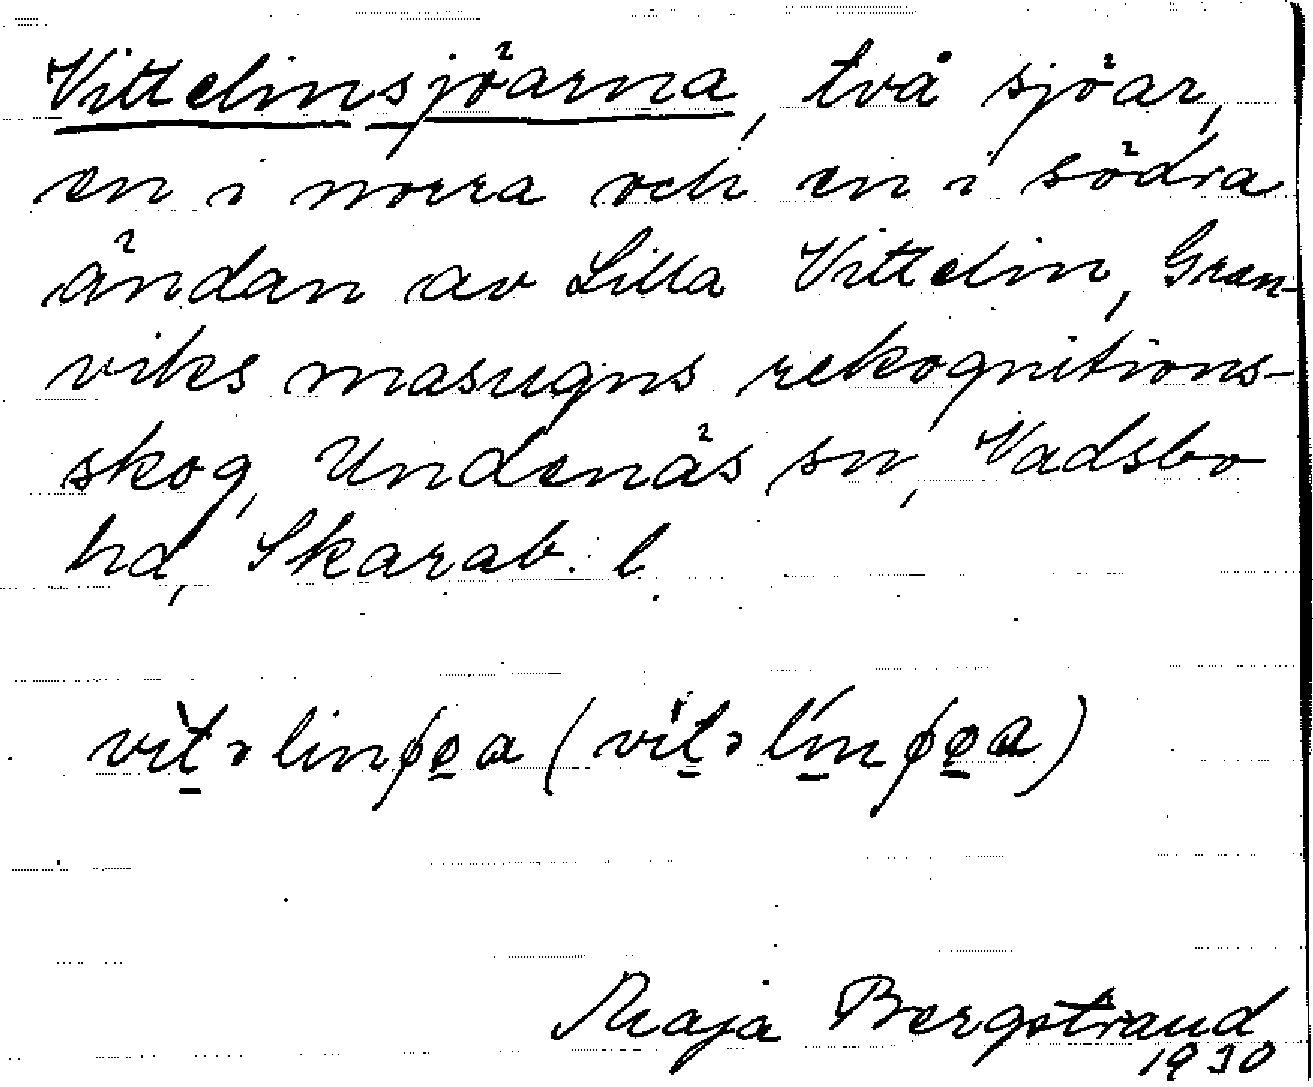 Vittelinsjöarna, två sjöar,
en i norra och en i södra
ändan av Lilla Vittelin, Gran-
viks masugns rekognitions-
skog, Undenäs sn, Vadsbo
hd, Skarab. l.
Maja Bergstrand
1930